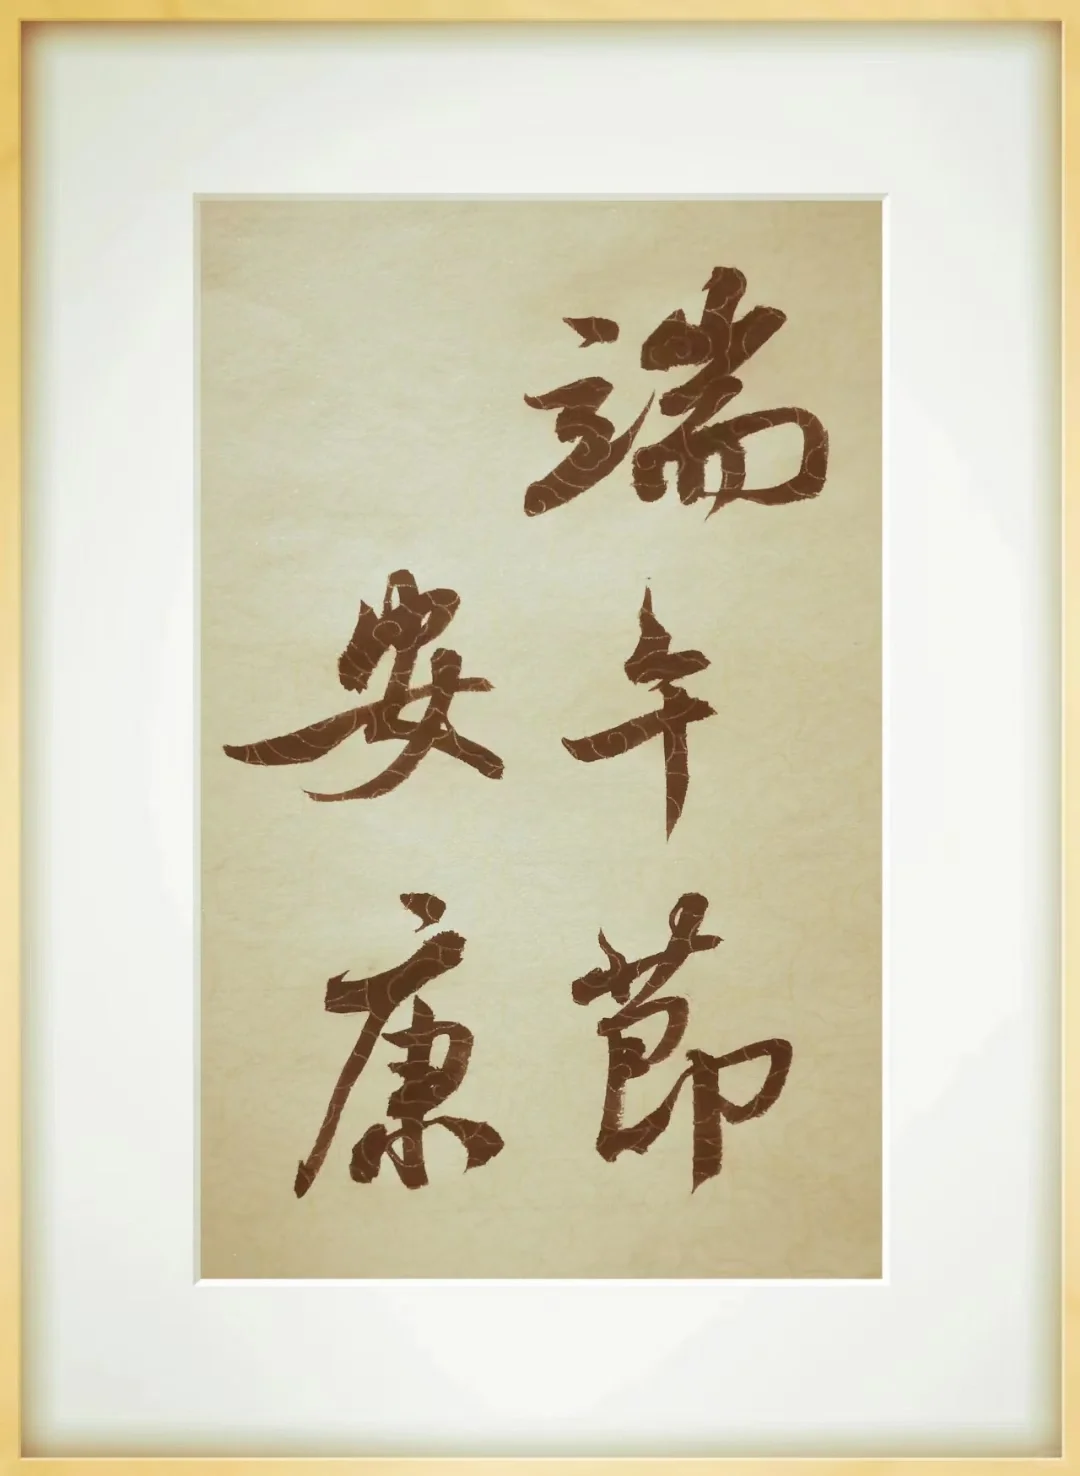 端午節
安康